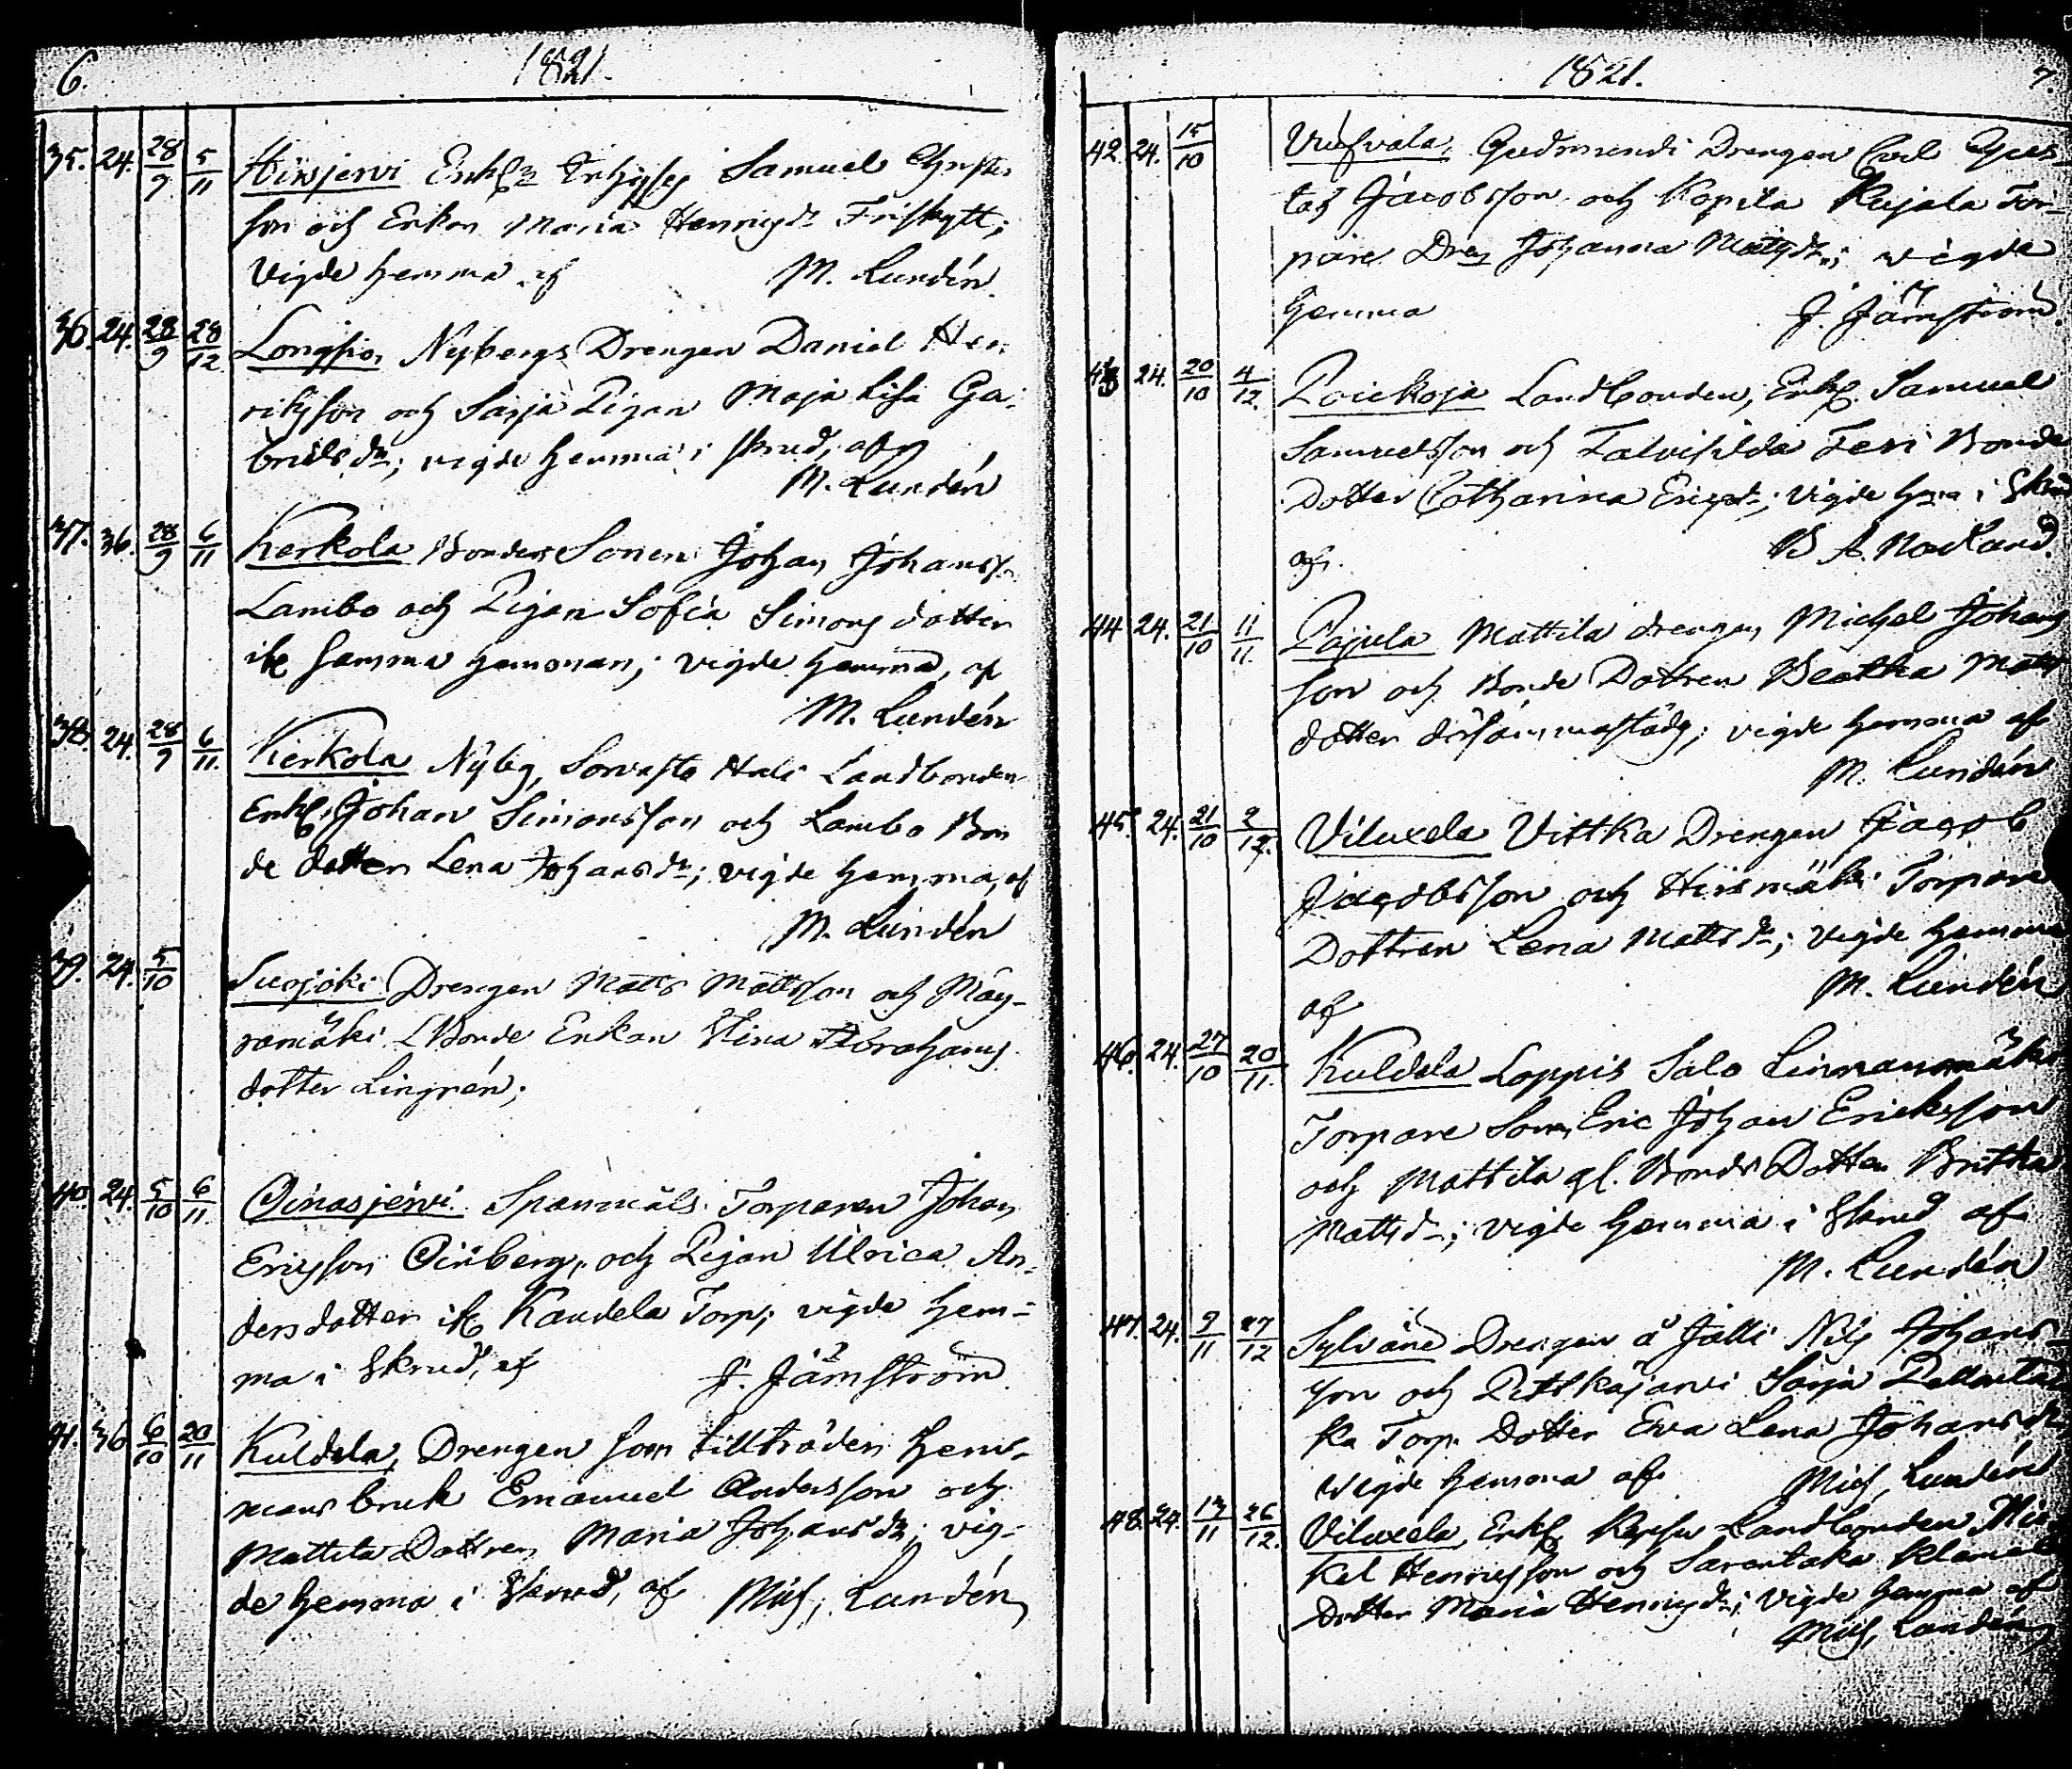 6. 1821.
35. 24. 28/9 5/11 Hirsjervi Enkl. Samuel
son och Enkan Maria Henrigsdr Friskytt;
Vigde hemma af M. Lundén.
36. 24. 28/9 28/12 Nybergs Drengen Daniel Hen
riksson och Sarja Pigan Maja Lisa Ga-
briels dr; vigde hemma i skrud, af
M. Lundén
37. 36. 28/9 6/11 Kerkola Bonde Sonen Johan Johanss.
Lambo och Pigan Sofia Simons dotter
samma hemman; vigde hemma, af
M. Lundén
38. 24. 28/9 6/11. Kerkola Nybg, Sorvasto Landbonden
Enkl. Johan Simonsson och Lambo Bon
de dotter Lena Johansdr; vigde hemma, af
M. Lundén
39. 24. 5/10 Suojoki Drengen Matts Mattsson och Mäy-
rämäki L Bonde Enkan Stina Abrahams
dotter Lingrén;
40. 24. 5/10 6/11 Oinasjervi Spannmåls Torparen Johan
Ericsson Oinberg, och Pigan Ulrica An-
dersdotter Kaudela Torp; vigde hem-
ma i Skrud, af J. Jämström
41. 36 6/10 20/11 Kuldala, Drengen som tillträder hem-
mans bruk Emanuel Andersson och
Mattila Dottren Maria Johansdr; vig-
de hemma i Skrud, af Mich. Lundén

1821. 7.
42. 24. 15/10 Gudmundi Drengen Carl Gus
taf Jacobsson och Kopila Kujala Tor-
pare Johanna Mattsdr; vigde
hemma J. Jämström.
43 24. 20/10 4/12. Poickoja Landbonden, Enkl. Samuel
Samuelsson och Talvisilda Bonde
Dotter Catharina Ericsdr; vigde hma i Skrud
af.
44 24. 21/10 11/11. Pajula Mattila drengen Michel Johans
son och Bonde Dottren Beatha Matts
dotter dersammastäds; vigde hemma af
M. Lundén
45. 24. 21/10 2/12. Viluxela Vittka Drengen Jacob
Jacobsson och Hirsmäki Torpare
Dottren Lena Mattsdr; vigde hemma
af M. Lundén
46. 24. 27/10 20/11. Kuldala Loppis Salo Linnanmäki
Torpare Son, Eric Johan Ericksson
och Mattila gl. Bonde Dotter Britha
Mattsdr; vigde hemma i Skrud af
M. Lundén
47. 24. 9/11 27/12 Sylväne Drengen å Jalli Nils Johans-
son och Pitkäjärvi Sarja
ka Torp. Dotter Eva Lena Johansdr
vigde hemma af Mich. Lundén
48. 24. 13/11 26/12. Viluxela, Enkl. Landbonden Mic
kel Henricsson och
Dotter Maria Henricsdr; vigde hemma af
Mich. Lundén